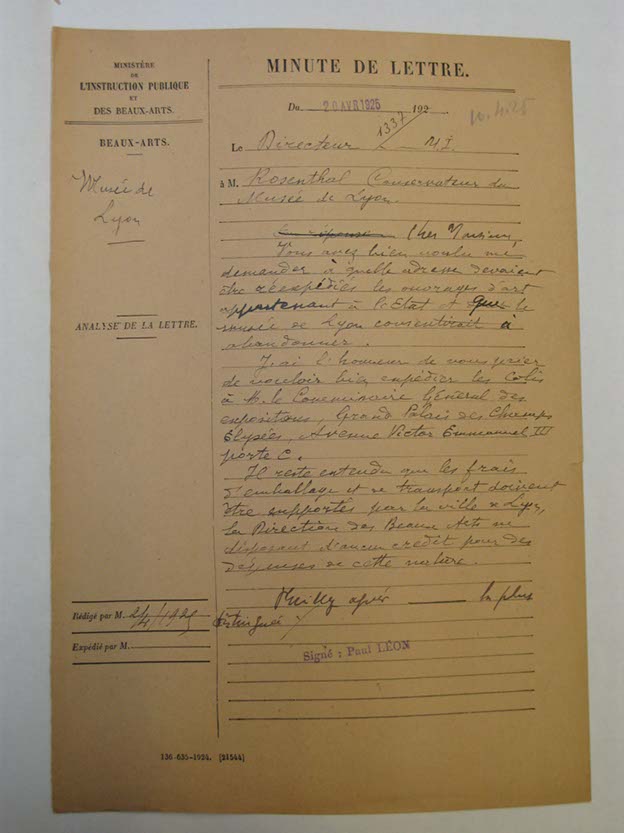 MINISTÈRE
DE
L'INSTRUCTION PUBLIQUE
ET
DES BEAUX-ARTS.
BEAUX-ARTS.
Musée de
Lyon
ANALYSE DE LA LETTRE.
Rédigé par M.
Expédié par M.
MINUTE DE LETTRE.
Du 20 AVR 1925 192
10.4.25
1337
Le Directeur
à M. Rosenthal Conservateur du
Musée de Lyon.
En réponse Cher Monsieur,
Vous avez bien voulu me
demander à quelle adresse devaient
être réexpédiés les ouvrages d'art
appartenant à l'Etat et que le
musée de Lyon consentirait à
abandonner.
J'ai l'honneur de vous prier
de vouloir bien expédier les colis
à M. le Commissaire Général des
expositions, Grand Palais des Champs
Elysées, Avenue Victor Emmanuel III
porte C.
Il reste entendu que les frais
d'emballage et de transport doivent
être supportés par la ville de Lyon,
la Direction des Beaux Arts ne
disposant d'aucun crédit pour des
dépenses de cette nature.
Veuillez agréer la plus
distinguée
Signé : Paul LÉON
136-635-1924. [21544]